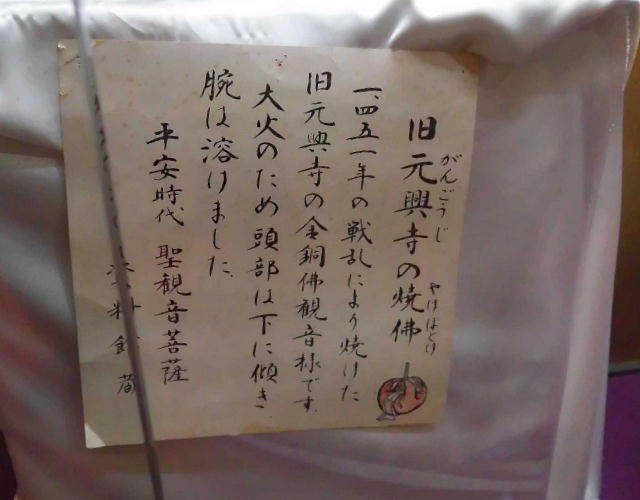 旧元興寺の焼佛
がんごうじ
やけほとけ
一、四五一年の戦乱により焼けた
旧元興寺の金銅佛観音様です。
大火のため頭部は下に傾き
腕は溶けました。
平安時代 聖観音菩薩